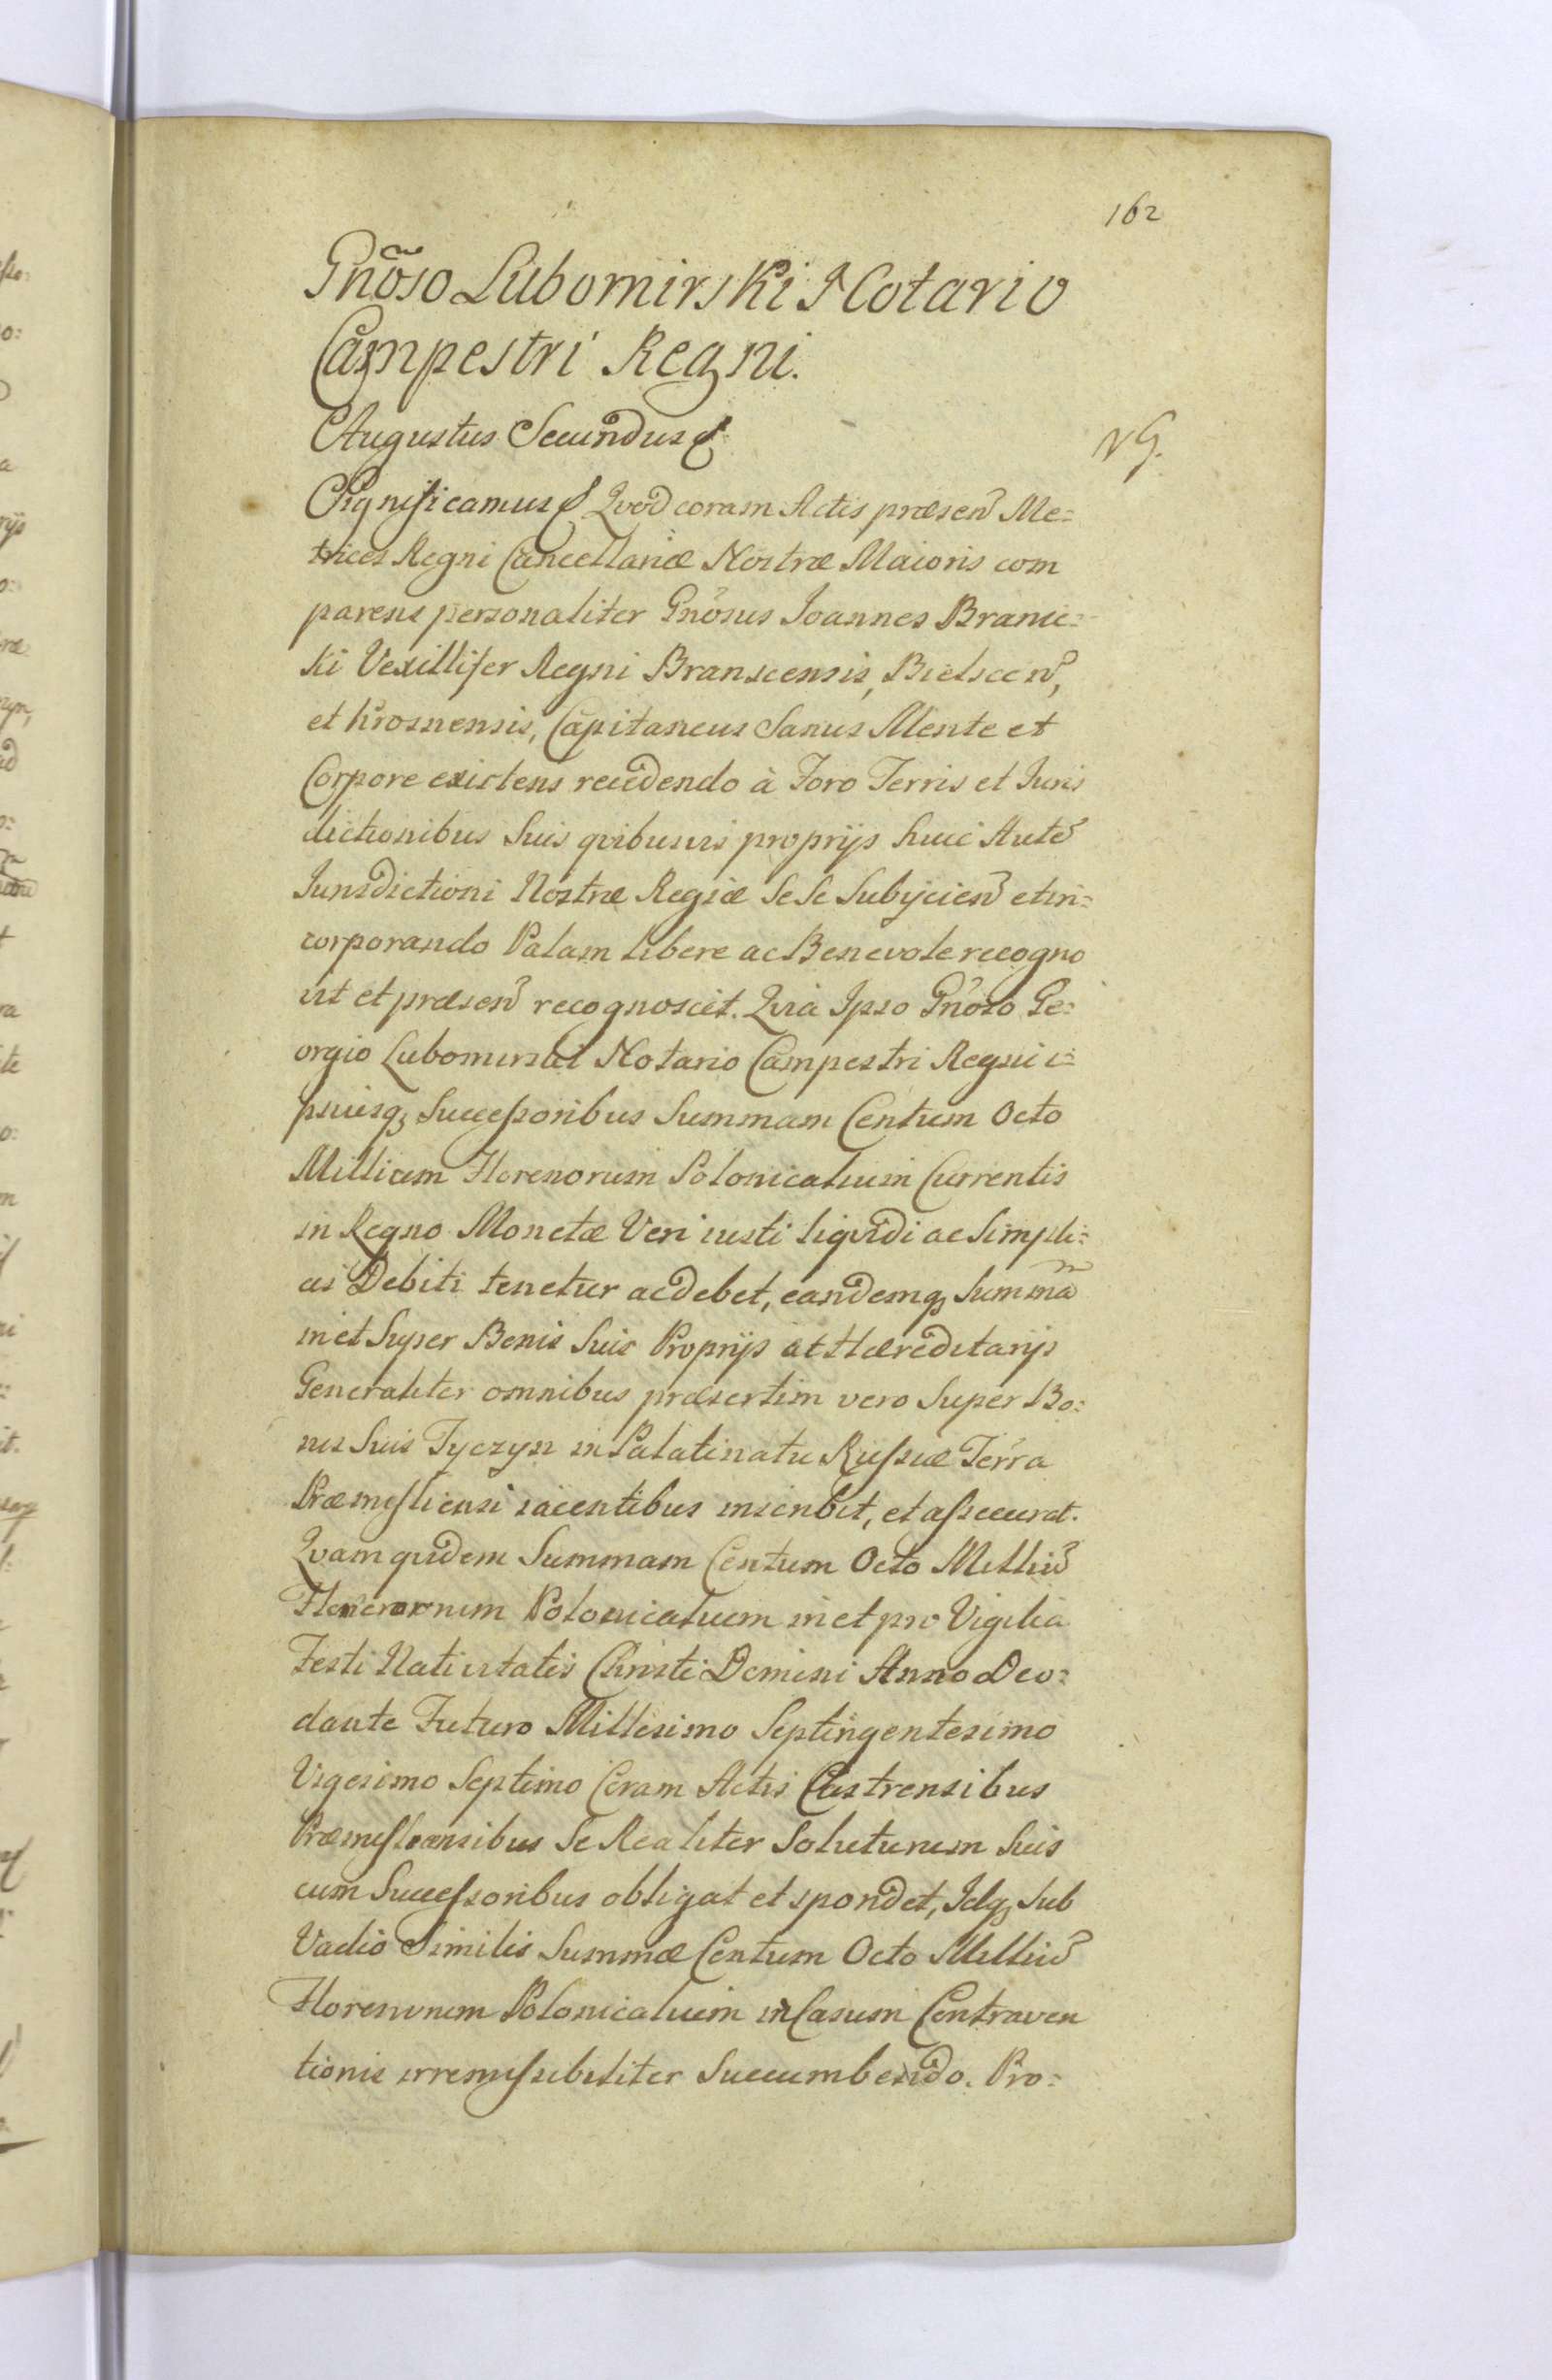 162
Gnõso Lubomirski Notario
Campestri Regni.
Augustus Secundus &
NG.
Significamus & Qvod coram Actis præsen̉ Me=
trices Regni Cancellariæ Nostræ Maioris com
parens personaliter Gnõsus Joannes Branic=
ki Vexillifer Regni Branscensis, Bielscen̉,
et Krosnensis, Capitaneus Sanus Mente et
Corpore existens recedendo à Foro Terris et Juris
dictionibus Suis qvibusvis proprijs huic Aute͠
Jurisdictioni Nostræ Regiæ Se Se Subijcien̉ et in=
corporando Palam libere ac Benevole recogno
vit et præsen̉ recognoscit. Qvia Ipso Gnõso Ge=
orgio Lubomirski Notario Campestri Regni i=
psiusq3 Successoribus Summam Centum Octo
Millium Florenorum Polonicalium Currentis
in Regno Monetæ Veri iusti liqvidi ac Simpli=
cis Debiti tenetur ac debet, eandemq3 Summã
in et Super Bonis Suis Proprijs et Hæreditarijs
Generaliter omnibus præsertim vero Super Bo=
nis Suis Tyczyn in Palatinatu Russiæ Terra
Præmisliensi iacentibus inscribit, et assecurat.
Qvam qvidem Summam Centum Octo Milliũ
Florenorum Polonicalium in et pro Vigilia
Festi Nativitatis Christi Domini Anno Deo=
dante Futuro Millesimo Septingentesimo
Vigesimo Septimo Coram Actis Castrensibus
Præmisliensibus Se Realiter Soluturum Suis
cum Successoribus obligat et spondet, Idq3 Sub
Vadio Similis Summæ Centum Octo Milliũ
Florenorum Polonicalium in Casum Contraven
tionis irremissibiliter Succumbendo. Pro=